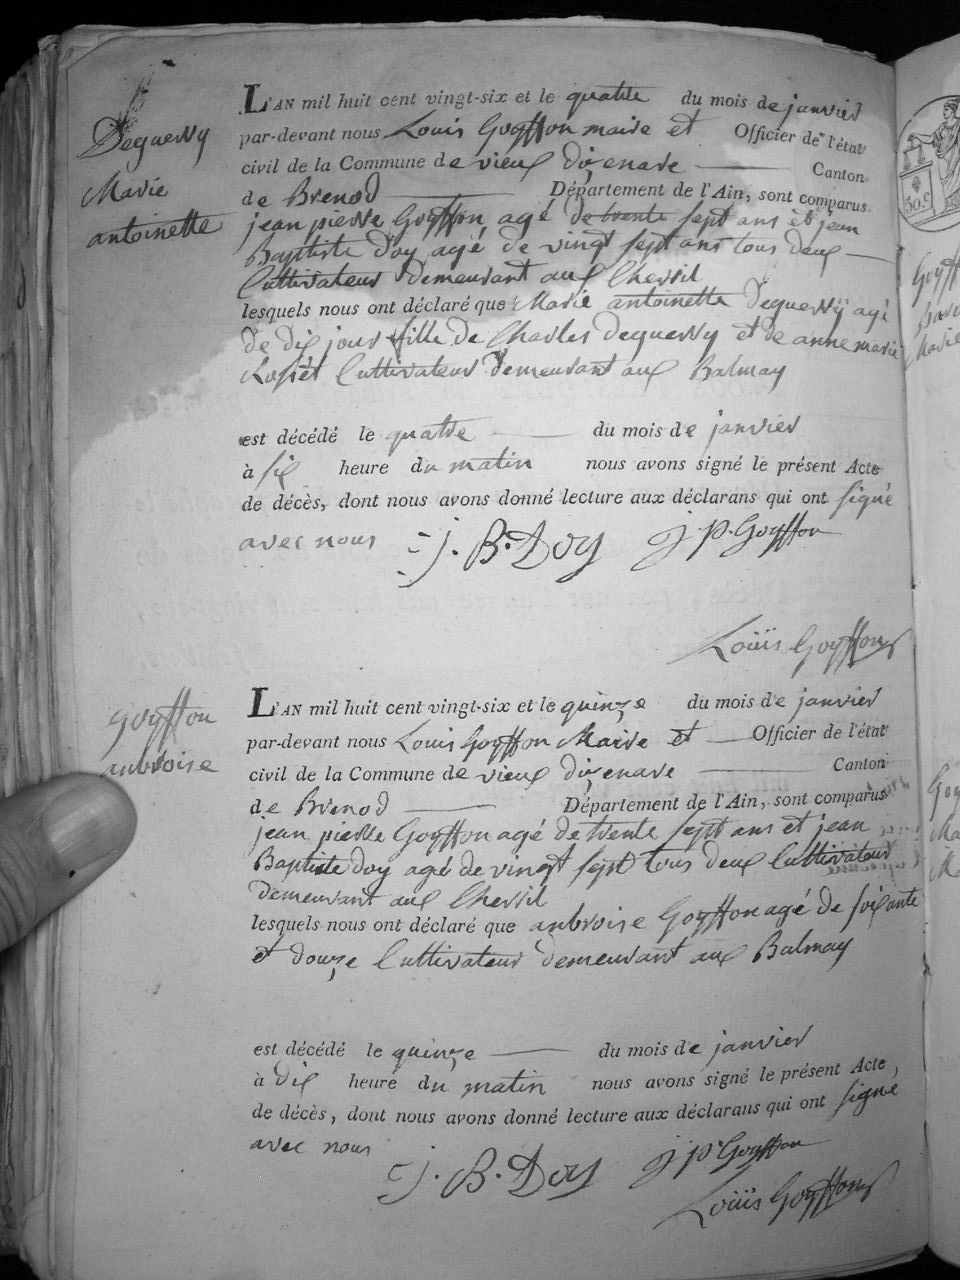 Deguerry
Marie
antoinette
L'AN mil huit cent vingt-six et le quatre du mois de janvier
par-devant nous Louis Goyffon maire et Officier de l'état
civil de la Commune de vieux dizenave Canton
de Brenod Département de l'Ain, sont comparus
jean pierre Goyffon agé de trente sept ans et jean
Baptiste Doy agé de vingt sept ans tous deux
Cultivateur demeurant aux Chevril
lesquels nous ont déclaré que Marie antoinette Deguerry agé
de dix jour fille de Charles Deguerry et de anne marie
Cultivateur demeurant aux Balmay
est décédé le quatre du mois de janvier
à six heure du matin nous avons signé le présent Acte
de décès, dont nous avons donné lecture aux déclarans qui ont signé
avec nous J. B. Doy J P. Goyffon
Louïs Goyffon
Goyffon
anbroise
L'AN mil huit cent vingt-six et le quinze du mois de janvier
par-devant nous Louis Goyffon Maire et Officier de l'état
civil de la Commune de vieux dizenave Canton
de Brenod Département de l'Ain, sont comparus
jean pierre Goyffon agé de trente sept ans et jean
Baptiste doy agé de vingt sept tous deux Cultivateur
demeurant aux Chevril
lesquels nous ont déclaré que anbroise Goyffon agé de soixante
et douze Cultivateur demeurant aux Balmay
est décédé le quinze du mois de janvier
à dix heure du matin nous avons signé le présent Acte,
de décès, dont nous avons donné lecture aux déclarans qui ont signé
avec nous
J. B. Doy J P Goyffon
Louïs Goyffon
50.c